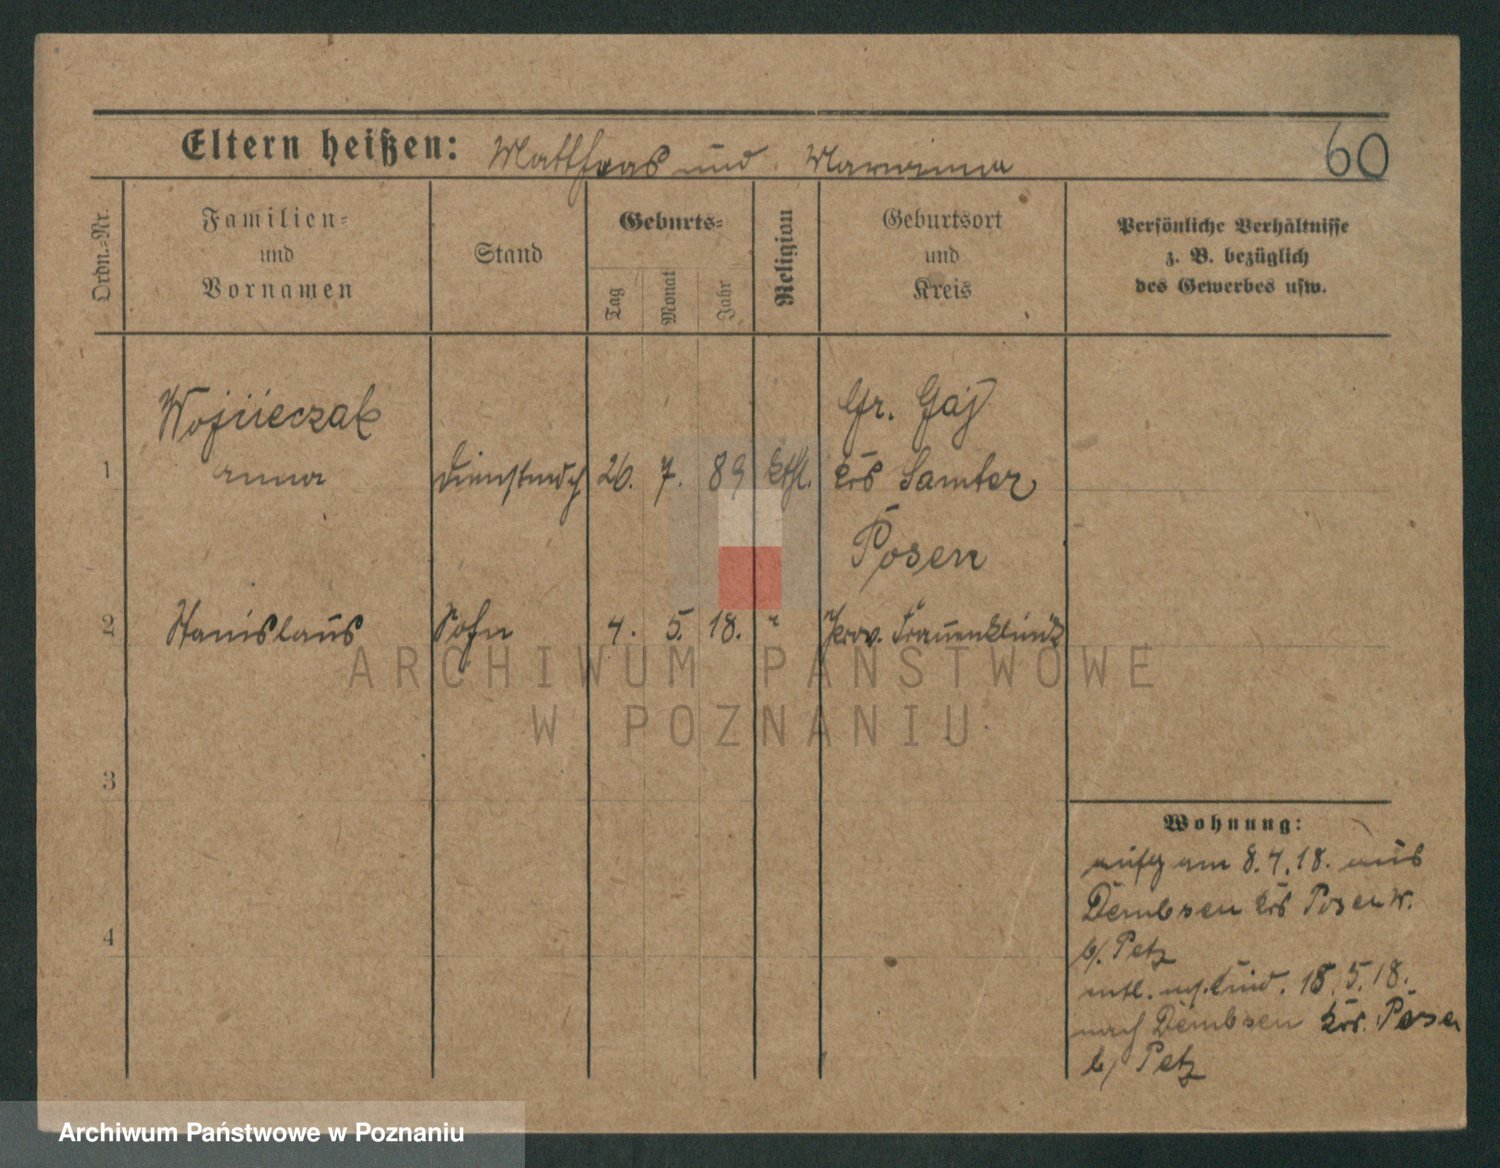 Eltern heißen: Matthäas und Marianna
60
Ordn.-Nr.
Familien-
und
Vornamen
Stand
Geburts-
Tag
Monat
Jahr
Religion
Geburtsort
und
Kreis
Persönliche Verhältnisse
z. B. bezüglich
des Gewerbes usw.
Wojcieczak
1 Anna Dienstmdch 26. 7. 89 kthl.
Gr. Gaj
Krs Samter
Posen
2 Stanislaus Sohn 4. 5. 18. " Prov. Frauenklinik
3
4
Wohnung:
aufg am 8.4.18. aus
Dembsen Krs Posen W.
b/. Petz
entl. m. Kind. 18.5.18.
nach Dembsen Krs. Posen
b/ Petz
ARCHIWUM PAŃSTWOWE
W POZNANIU
Archiwum Państwowe w Poznaniu